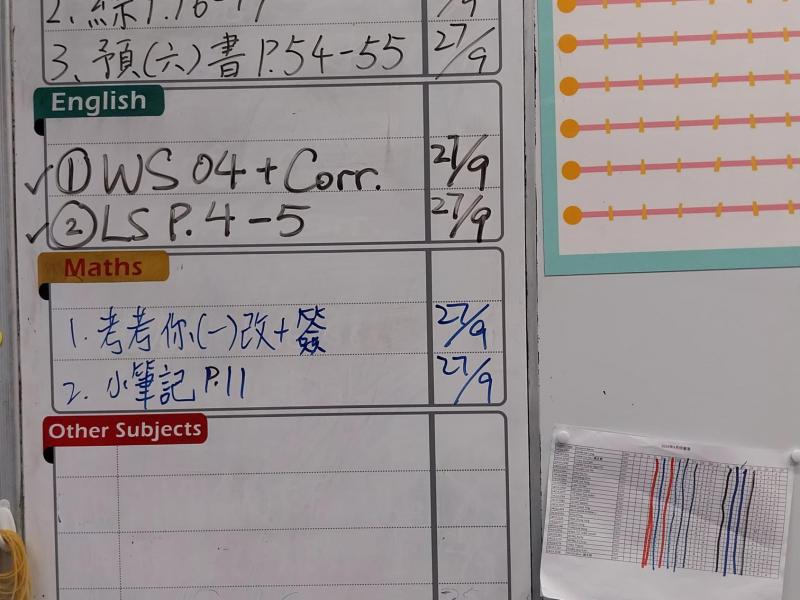 2. 綜 P.16-17 /9
3. 預(六)書 P.54-55 27/9
English
✓ ① WS 04 + Corr. 27/9
✓ ② LS P. 4-5 27/9
Maths
1. 考考你(一)改+簽 27/9
2. 小筆記 P.11 27/9
Other Subjects